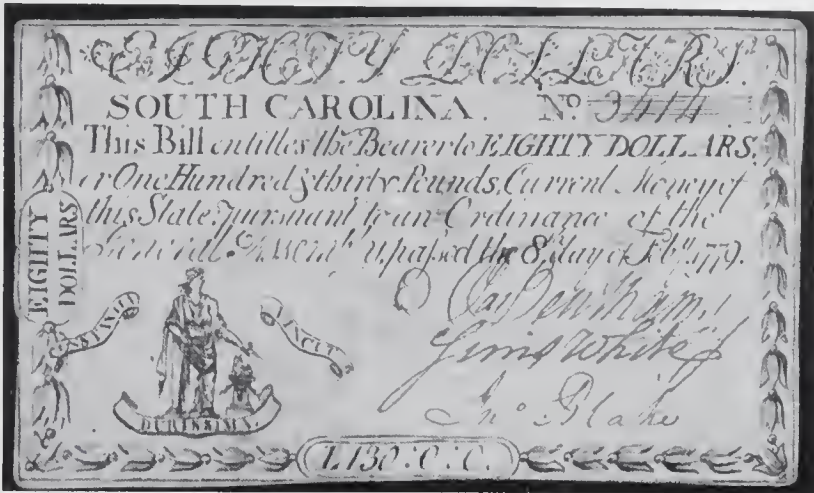 EIGHTY DOLLARS.
SOUTH CAROLINA. No. 3414
This Bill entitles the Bearer to EIGHTY DOLLARS,
or One Hundred & thirty Pounds, Current Money of
this State, pursuant to an Ordinance of the
General Assembly, passed the 8th day of Feby. 1779.
EIGHTY
DOLLARS
White
Jno. Blake
DURISSIMA.
£130:0:0.